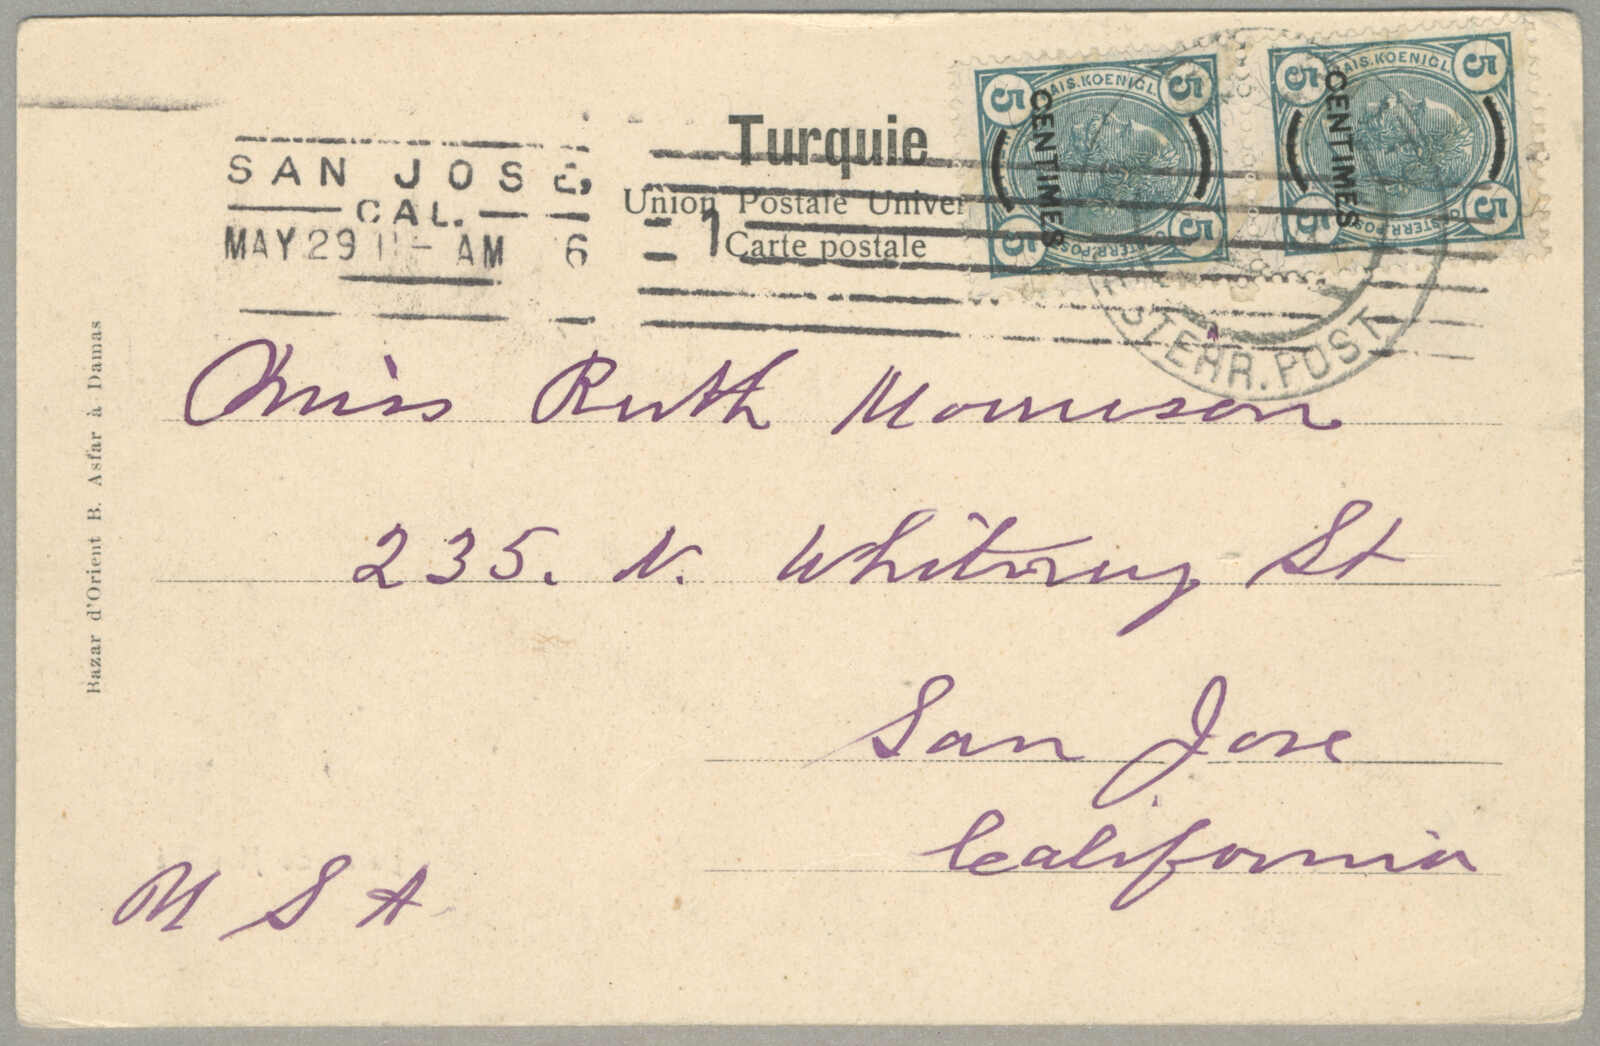 Turquie
Union Postale Univer
Carte postale
SAN JOSE,
CAL.
MAY 29 11 - AM 6
1
5 5 5 5
AIS. KOENIGL.
CENTIMES
STERR. POS
5 5 5 5
AIS. KOENIGL.
CENTIMES
STERR. POS
STERR. POST
Miss Ruth Morrison
235. N. Whitney St
San Jose
California
U S A
Bazar d'Orient B. Asfar à Damas